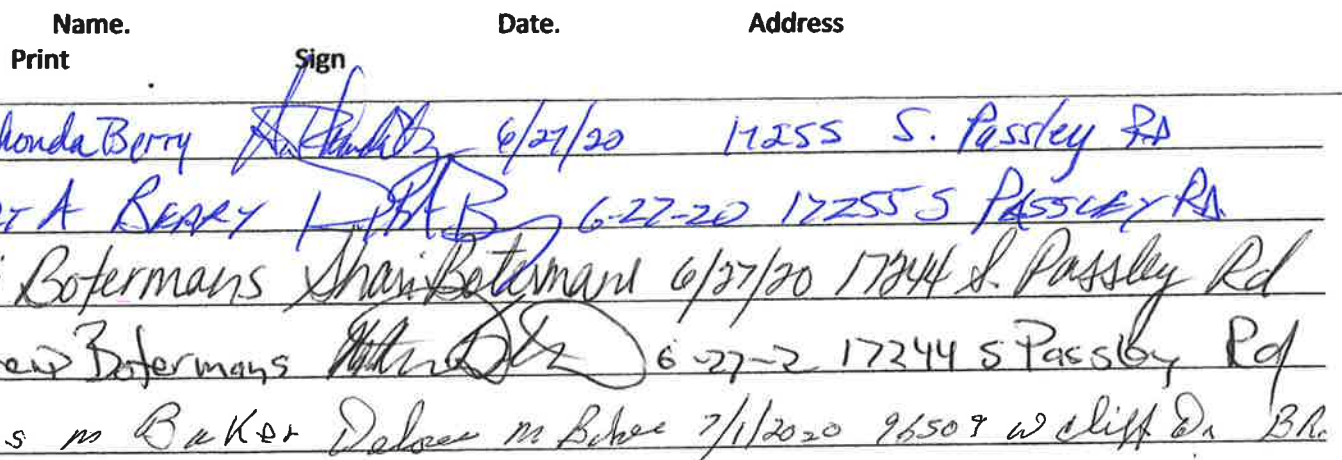 Name. Date. Address
Print Sign
honda Berry 6/27/20 17255 S. Passley RD
A BERRY 6-27-20 17255 S PASSLEY RD
Botermans Shari Botermans 6/27/20 17244 S. Passley Rd
Botermans 6-27-2 17244 S Passley Rd
s m Baker Delores m Baker 7/1/2020 96509 w cliff Dr BR.